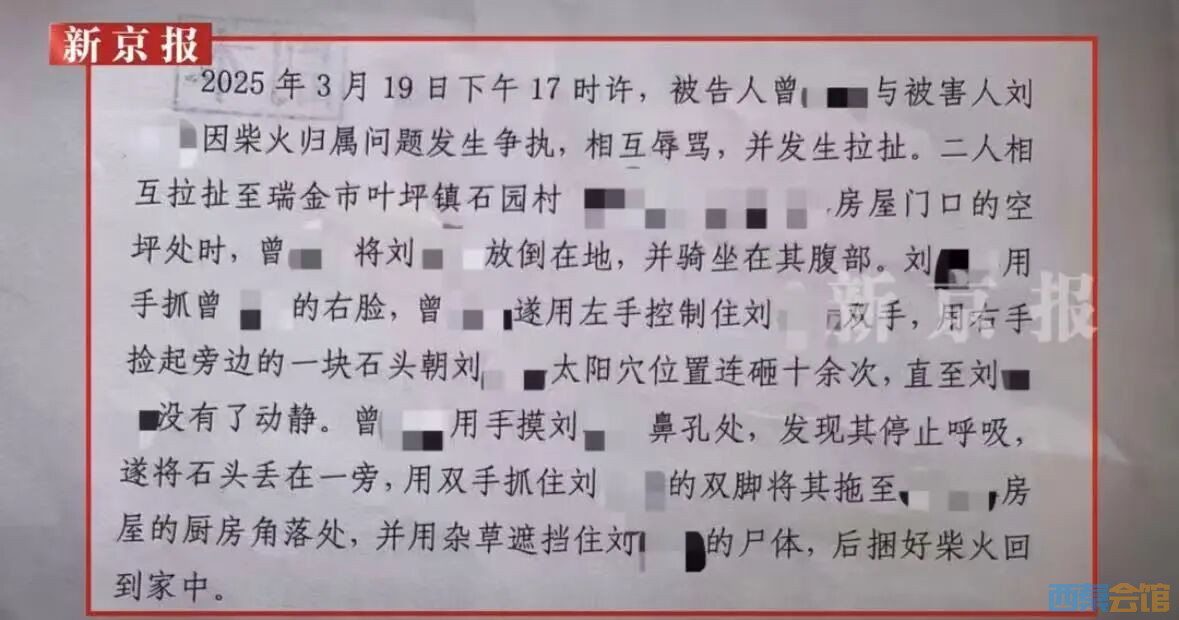 新京报
2025年3月19日下午17时许，被告人曾与被害人刘
因柴火归属问题发生争执，相互辱骂，并发生拉扯。二人相
互拉扯至瑞金市叶坪镇石园村房屋门口的空
坪处时，曾将刘放倒在地，并骑坐在其腹部。刘用
手抓曾的右脸，曾遂用左手控制住刘双手，用右手
捡起旁边的一块石头朝刘太阳穴位置连砸十余次，直至刘
没有了动静。曾用手摸刘鼻孔处，发现其停止呼吸，
遂将石头丢在一旁，用双手抓住刘的双脚将其拖至房
屋的厨房角落处，并用杂草遮挡住刘的尸体，后捆好柴火回
到家中。
新京报
西祠会馆